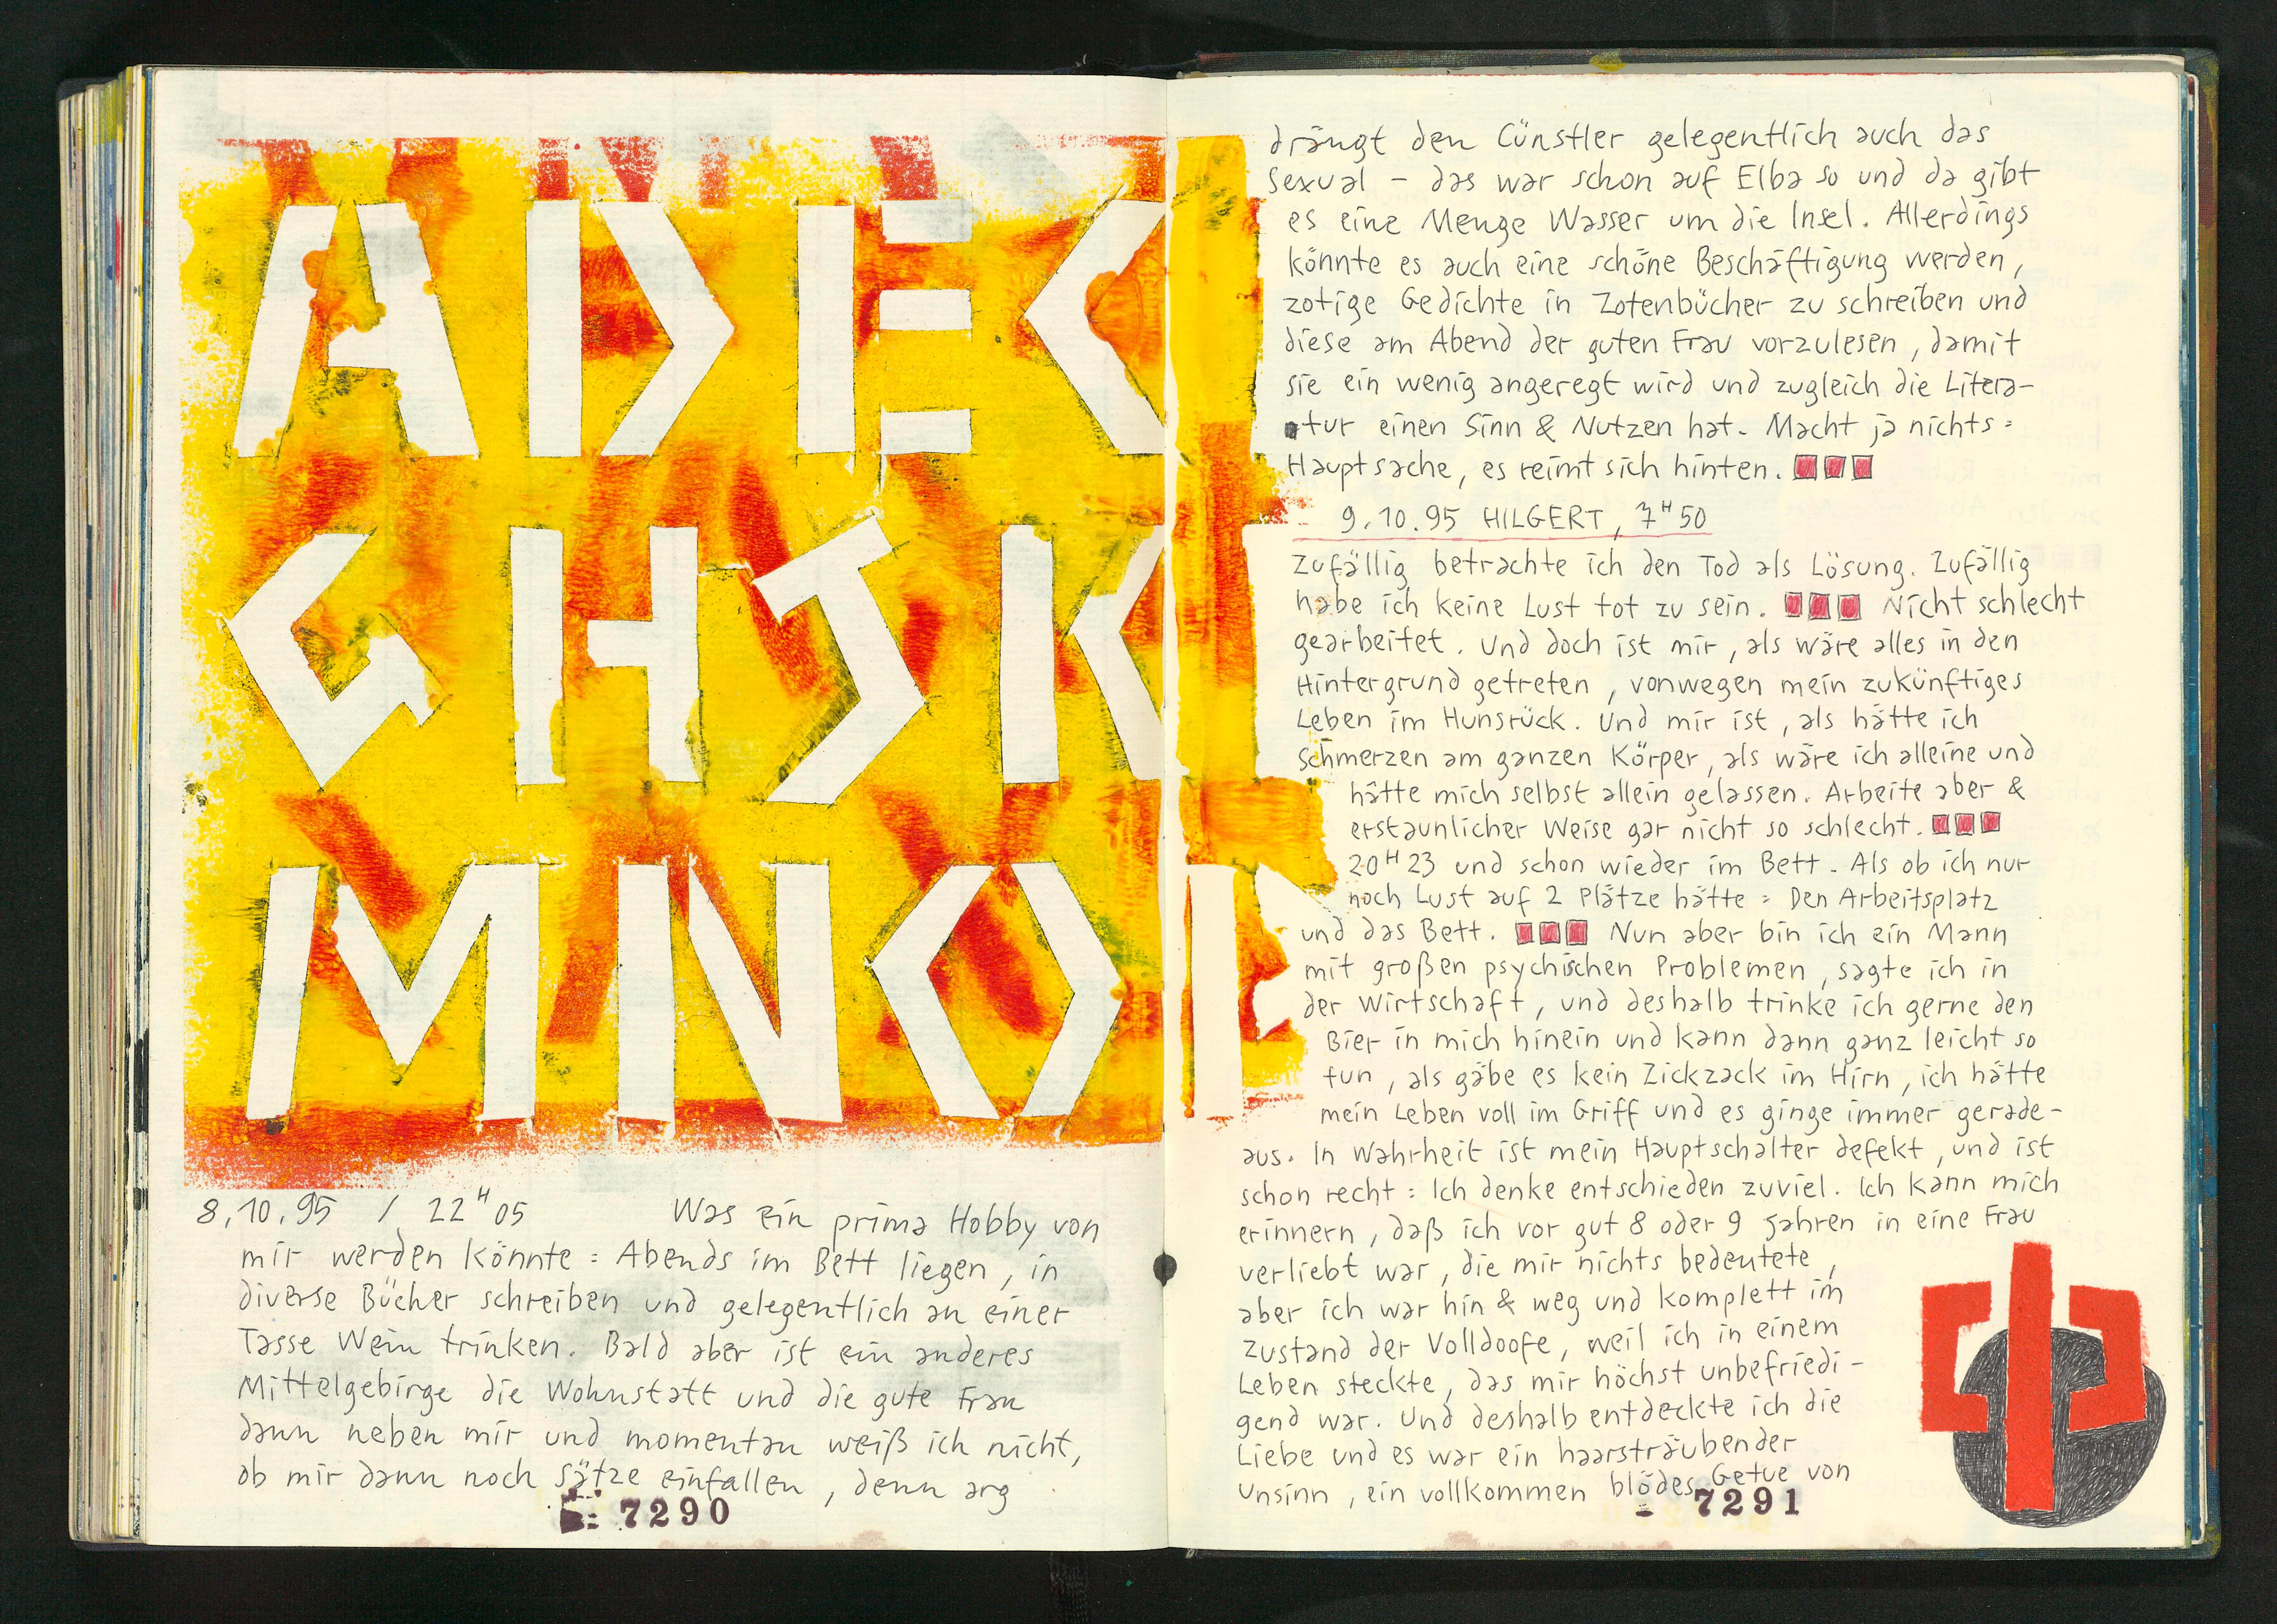 A D E C
G H J K
M N O P
8.10.95 / 22H05 Was ein prima Hobby von
mir werden könnte: Abends im Bett liegen, in
diverse Bücher schreiben und gelegentlich an einer
Tasse Wein trinken. Bald aber ist ein anderes
Mittelgebirge die Wohnstatt und die gute Frau
dann neben mir und momentan weiß ich nicht,
ob mir dann noch Sätze einfallen, denn arg
7290
drängt den Cünstler gelegentlich auch das
Sexual – das war schon auf Elba so und da gibt
es eine Menge Wasser um die Insel. Allerdings
könnte es auch eine schöne Beschäftigung werden,
zotige Gedichte in Zotenbücher zu schreiben und
diese am Abend der guten Frau vorzulesen, damit
sie ein wenig angeregt wird und zugleich die Litera-
tur einen Sinn & Nutzen hat. Macht ja nichts:
Hauptsache, es reimt sich hinten.
9.10.95 HILGERT, 7H50
Zufällig betrachte ich den Tod als Lösung. Zufällig
habe ich keine Lust tot zu sein. Nicht schlecht
gearbeitet. Und doch ist mir, als wäre alles in den
Hintergrund getreten, vonwegen mein zukünftiges
Leben im Hunsrück. Und mir ist, als hätte ich
Schmerzen am ganzen Körper, als wäre ich alleine und
hätte mich selbst allein gelassen. Arbeite aber &
erstaunlicher Weise gar nicht so schlecht.
20H23 und schon wieder im Bett. Als ob ich nur
noch Lust auf 2 Plätze hätte: Den Arbeitsplatz
und das Bett. Nun aber bin ich ein Mann
mit großen psychischen Problemen, sagte ich in
der Wirtschaft, und deshalb trinke ich gerne den
Bier in mich hinein und kann dann ganz leicht so
tun, als gäbe es kein Zickzack im Hirn, ich hätte
mein Leben voll im Griff und es ginge immer gerade-
aus. In Wahrheit ist mein Hauptschalter defekt, und ist
schon recht: Ich denke entschieden zuviel. Ich kann mich
erinnern, daß ich vor gut 8 oder 9 Jahren in eine Frau
verliebt war, die mir nichts bedeutete,
aber ich war hin & weg und komplett im
Zustand der Volldoofe, weil ich in einem
Leben steckte, das mir höchst unbefriedi-
gend war. Und deshalb entdeckte ich die
Liebe und es war ein haarsträubender
Unsinn, ein vollkommen blödes Getue von
7291